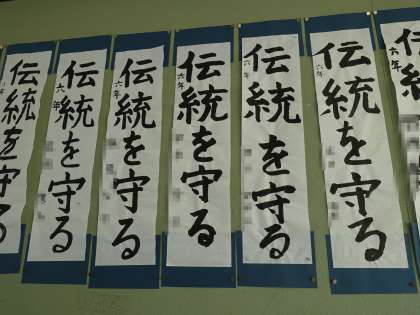 伝統
六年
伝統を守る
六年
伝統を守る
六年
伝統を守る
六年
伝統を守る
六年
伝統を守る
六年
伝統を守る